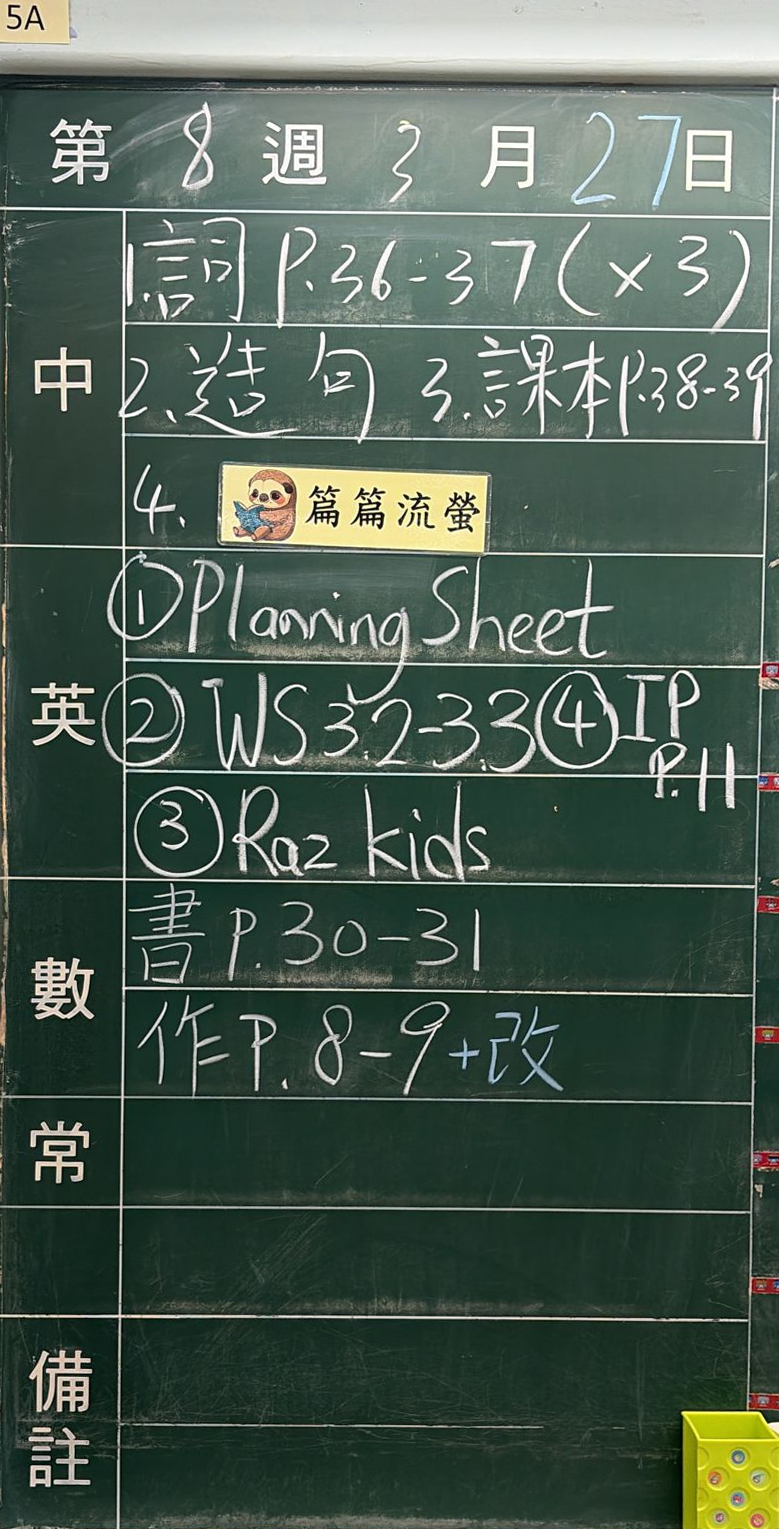 5A
第 8 週 3 月 27 日
中
1.詞 P.36-37(×3)
2.造句 3.課本P.38-39
4. 篇篇流螢
英
①Planning Sheet
②WS3.2-3.3④IP P.11
③Raz kids
數
書P.30-31
作P.8-9+改
常
備註